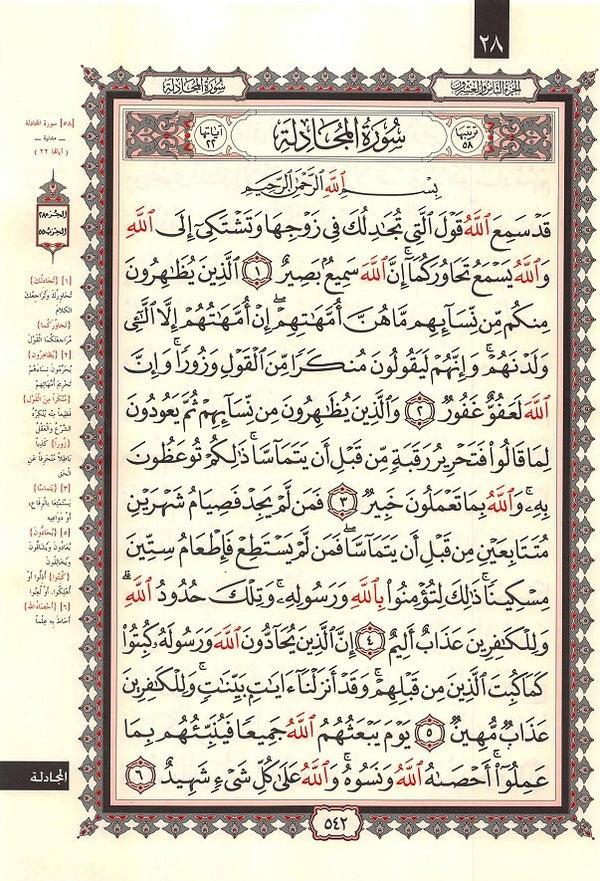 ٢٨
الجزء الثامن والعشرون
سورة المجادلة
ترتيبها ٥٨
سُورَةُ المُجَادِلَةِ
آياتها ٢٢
بِسْمِ ٱللَّهِ ٱلرَّحْمَٰنِ ٱلرَّحِيمِ
قَدْ سَمِعَ ٱللَّهُ قَوْلَ ٱلَّتِي تُجَٰدِلُكَ فِي زَوْجِهَا وَتَشْتَكِيٓ إِلَى ٱللَّهِ
وَٱللَّهُ يَسْمَعُ تَحَاوُرَكُمَآ ۚ إِنَّ ٱللَّهَ سَمِيعٌۢ بَصِيرٌ ١ ٱلَّذِينَ يُظَٰهِرُونَ
مِنكُم مِّن نِّسَآئِهِم مَّا هُنَّ أُمَّهَٰتِهِمْ ۖ إِنْ أُمَّهَٰتُهُمْ إِلَّا ٱلَّٰٓـِٔي
وَلَدْنَهُمْ ۚ وَإِنَّهُمْ لَيَقُولُونَ مُنكَرًا مِّنَ ٱلْقَوْلِ وَزُورًا ۚ وَإِنَّ
ٱللَّهَ لَعَفُوٌّ غَفُورٌ ٢ وَٱلَّذِينَ يُظَٰهِرُونَ مِن نِّسَآئِهِمْ ثُمَّ يَعُودُونَ
لِمَا قَالُوا۟ فَتَحْرِيرُ رَقَبَةٍ مِّن قَبْلِ أَن يَتَمَآسَّا ۚ ذَٰلِكُمْ تُوعَظُونَ
بِهِۦ ۚ وَٱللَّهُ بِمَا تَعْمَلُونَ خَبِيرٌ ٣ فَمَن لَّمْ يَجِدْ فَصِيَامُ شَهْرَيْنِ
مُتَتَابِعَيْنِ مِن قَبْلِ أَن يَتَمَآسَّا ۖ فَمَن لَّمْ يَسْتَطِعْ فَإِطْعَامُ سِتِّينَ
مِسْكِينًا ۚ ذَٰلِكَ لِتُؤْمِنُوا۟ بِٱللَّهِ وَرَسُولِهِۦ ۚ وَتِلْكَ حُدُودُ ٱللَّهِ ۗ
وَلِلْكَٰفِرِينَ عَذَابٌ أَلِيمٌ ٤ إِنَّ ٱلَّذِينَ يُحَآدُّونَ ٱللَّهَ وَرَسُولَهُۥ كُبِتُوا۟
كَمَا كُبِتَ ٱلَّذِينَ مِن قَبْلِهِمْ ۚ وَقَدْ أَنزَلْنَآ ءَايَٰتٍۭ بَيِّنَٰتٍ ۚ وَلِلْكَٰفِرِينَ
عَذَابٌ مُّهِينٌ ٥ يَوْمَ يَبْعَثُهُمُ ٱللَّهُ جَمِيعًا فَيُنَبِّئُهُم بِمَا
عَمِلُوٓا۟ ۚ أَحْصَىٰهُ ٱللَّهُ وَنَسُوهُ ۚ وَٱللَّهُ عَلَىٰ كُلِّ شَىْءٍ شَهِيدٌ ٦
٥٤٢
[٥٨] سورة المجادلة
– مدنية –
(آياتها ٢٢)
الجزء ٢٨
الحزب ٥٥
[١] {تُجَادِلُكَ}
تُحَاوِرُكَ وَتُرَاجِعُكَ
الكَلَامَ
{تَحَاوُرَكُمَا}
مُرَاجَعَتَكُمَا القَوْلَ
[٢] {يُظَاهِرُونَ}
يُحَرِّمُونَ نِسَاءَهُمْ
تَحْرِيمَ أُمَّهَاتِهِمْ
{مُنْكَراً مِنَ القَوْلِ}
فَظِيعاً مِنْهُ يُنْكِرُهُ
الشَّرْعُ وَالعَقْلُ
{زُوراً} كَذِباً
بَاطِلاً مُنْحَرِفاً عَنِ
الحَقِّ
[٣] {يَتَمَاسَّا}
يَسْتَمْتِعَا بِالوِقَاعِ،
أَوْ دَوَاعِيهِ
[٥] {يُحَادُّونَ}
يُعَادُونَ وَيُشَاقُّونَ
وَيُخَالِفُونَ
{كُبِتُوا} أُذِلُّوا أَوْ
أُهْلِكُوا، أَوْ لُعِنُوا
[٦] {أَحْصَاهُ اللهُ}
أَحَاطَ بِهِ عِلْماً
المجادلة